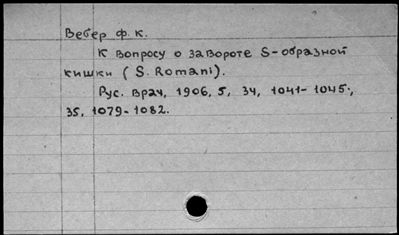 Вебер Ф. К.
К вопросу о завороте S-образной
кишки (S. Romani).
Рус. врач, 1906, 5, 34, 1041-1045;
35, 1079-1082.